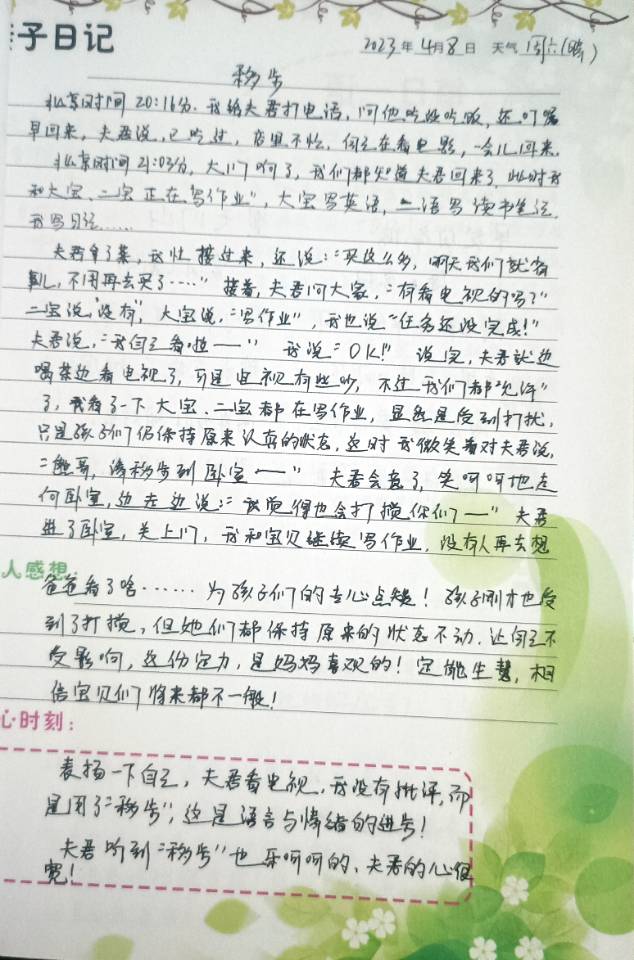 子日记
2023年4月8日 天气 周六(晴)
移步
北京时间20:16分.我给夫君打电话,问他吃没吃饭,还叮嘱
早回来,夫君说,已吃过,店里不忙,自己在看电影,一会儿回来.
北京时间21:03分,大门响了,我们都知道夫君回来了,此时我
和大宝、二宝正在"写作业",大宝写英语,二语写读书笔记,
我写日记……
夫君拿了菜,我忙接过来,还说:"买这么多,明天我们就有
,不用再去买了……"接着,夫君问大家,"有看电视的吗?"
二宝说"没有",大宝说,"写作业",我也说"任务还没完成!"
夫君说,"我自己看啦——" 我说"OK!" 说完,夫君就边
喝茶边看电视了,可是电视有些吵,不过我们都"允许"
了,我看了一下大宝、二宝都在写作业,显然是受到打扰,
只是孩子们仍保持原来认真的状态,这时我微笑着对夫君说,
"哥,请移步到卧室——" 夫君会意了,笑呵呵地走
向卧室,边走边说:"我觉得也会打搅你们——"夫君
进了卧室,关上门,我和宝贝继续写作业,没有人再去想
人感想:
爸爸看了啥……为孩子们的专心点赞!孩子刚才也受
到了打搅,但她们都保持原来的状态不动,让自己不
受影响,这份定力,是妈妈喜欢的!定能生慧,相
信宝贝们将来都不一般!
心时刻:
表扬一下自己,夫君看电视,我没有批评,而
是用了"移步",这是语言与情绪的进步!
夫君听到"移步"也乐呵呵的、夫君的心很
宽!